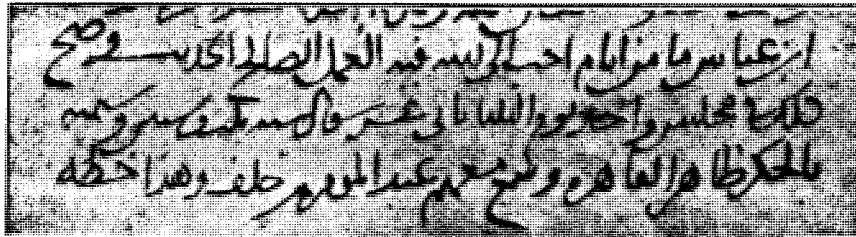 ابن عباس ما من ايام احب الى الله فيه العمل الصالح الحديث وصح
ذلك في مجلس واحد يوم الثلثا ثاني عشر شوال سنة وستين وستمية
بالحكر ظاهر القاهرة وسمع معهم عبد المومن بن خلف وهذا خطه